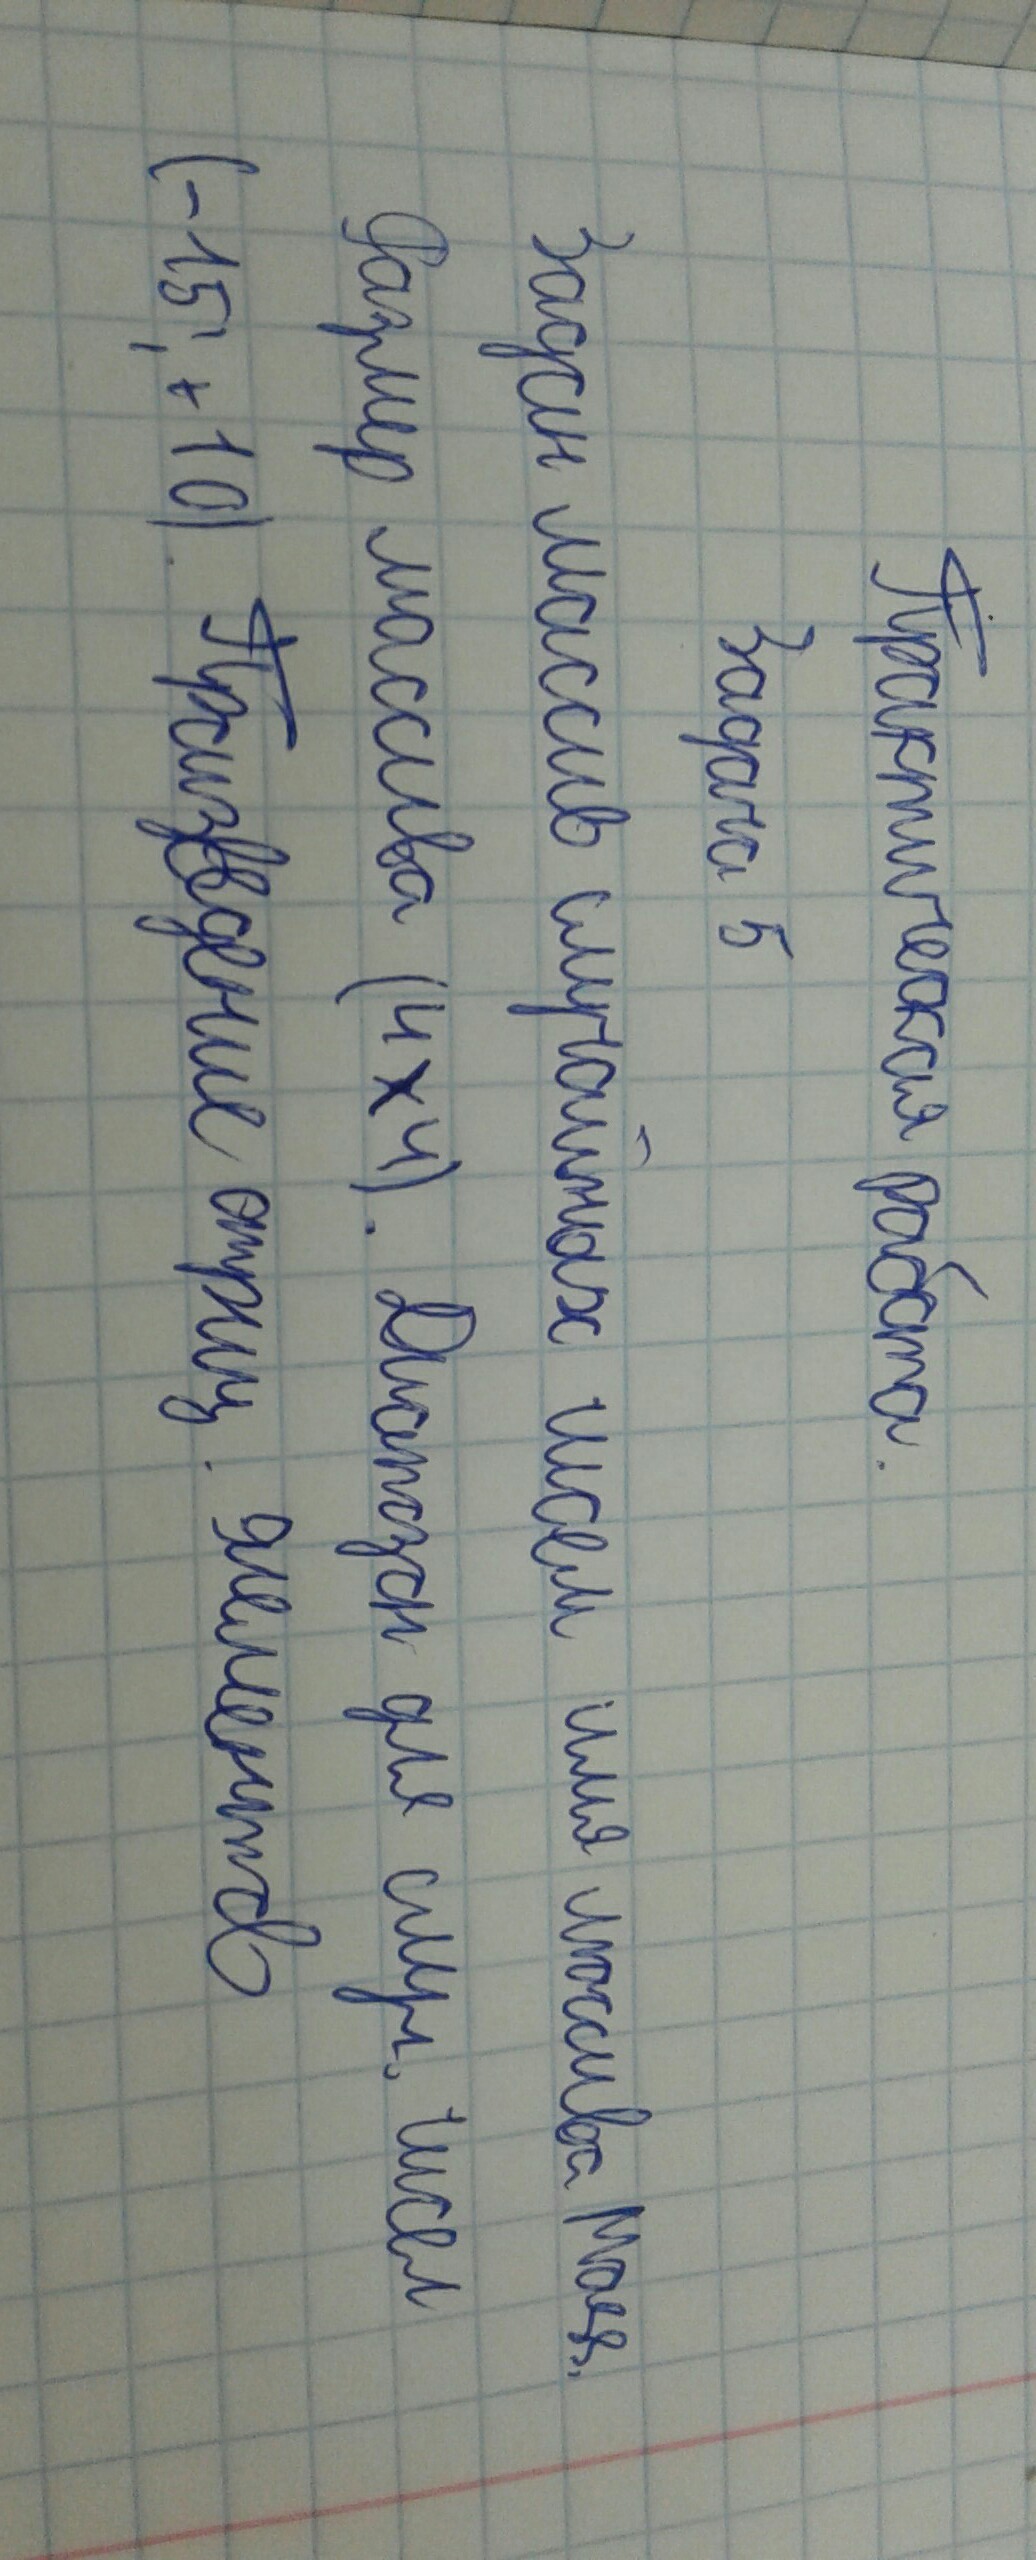 Практическая работа.
Задача 5
Задан массив случайных чисел имя массива
Размер массива (4х4). Диапазон для случ. чисел
(-15, +10). Произведение отриц. элементов